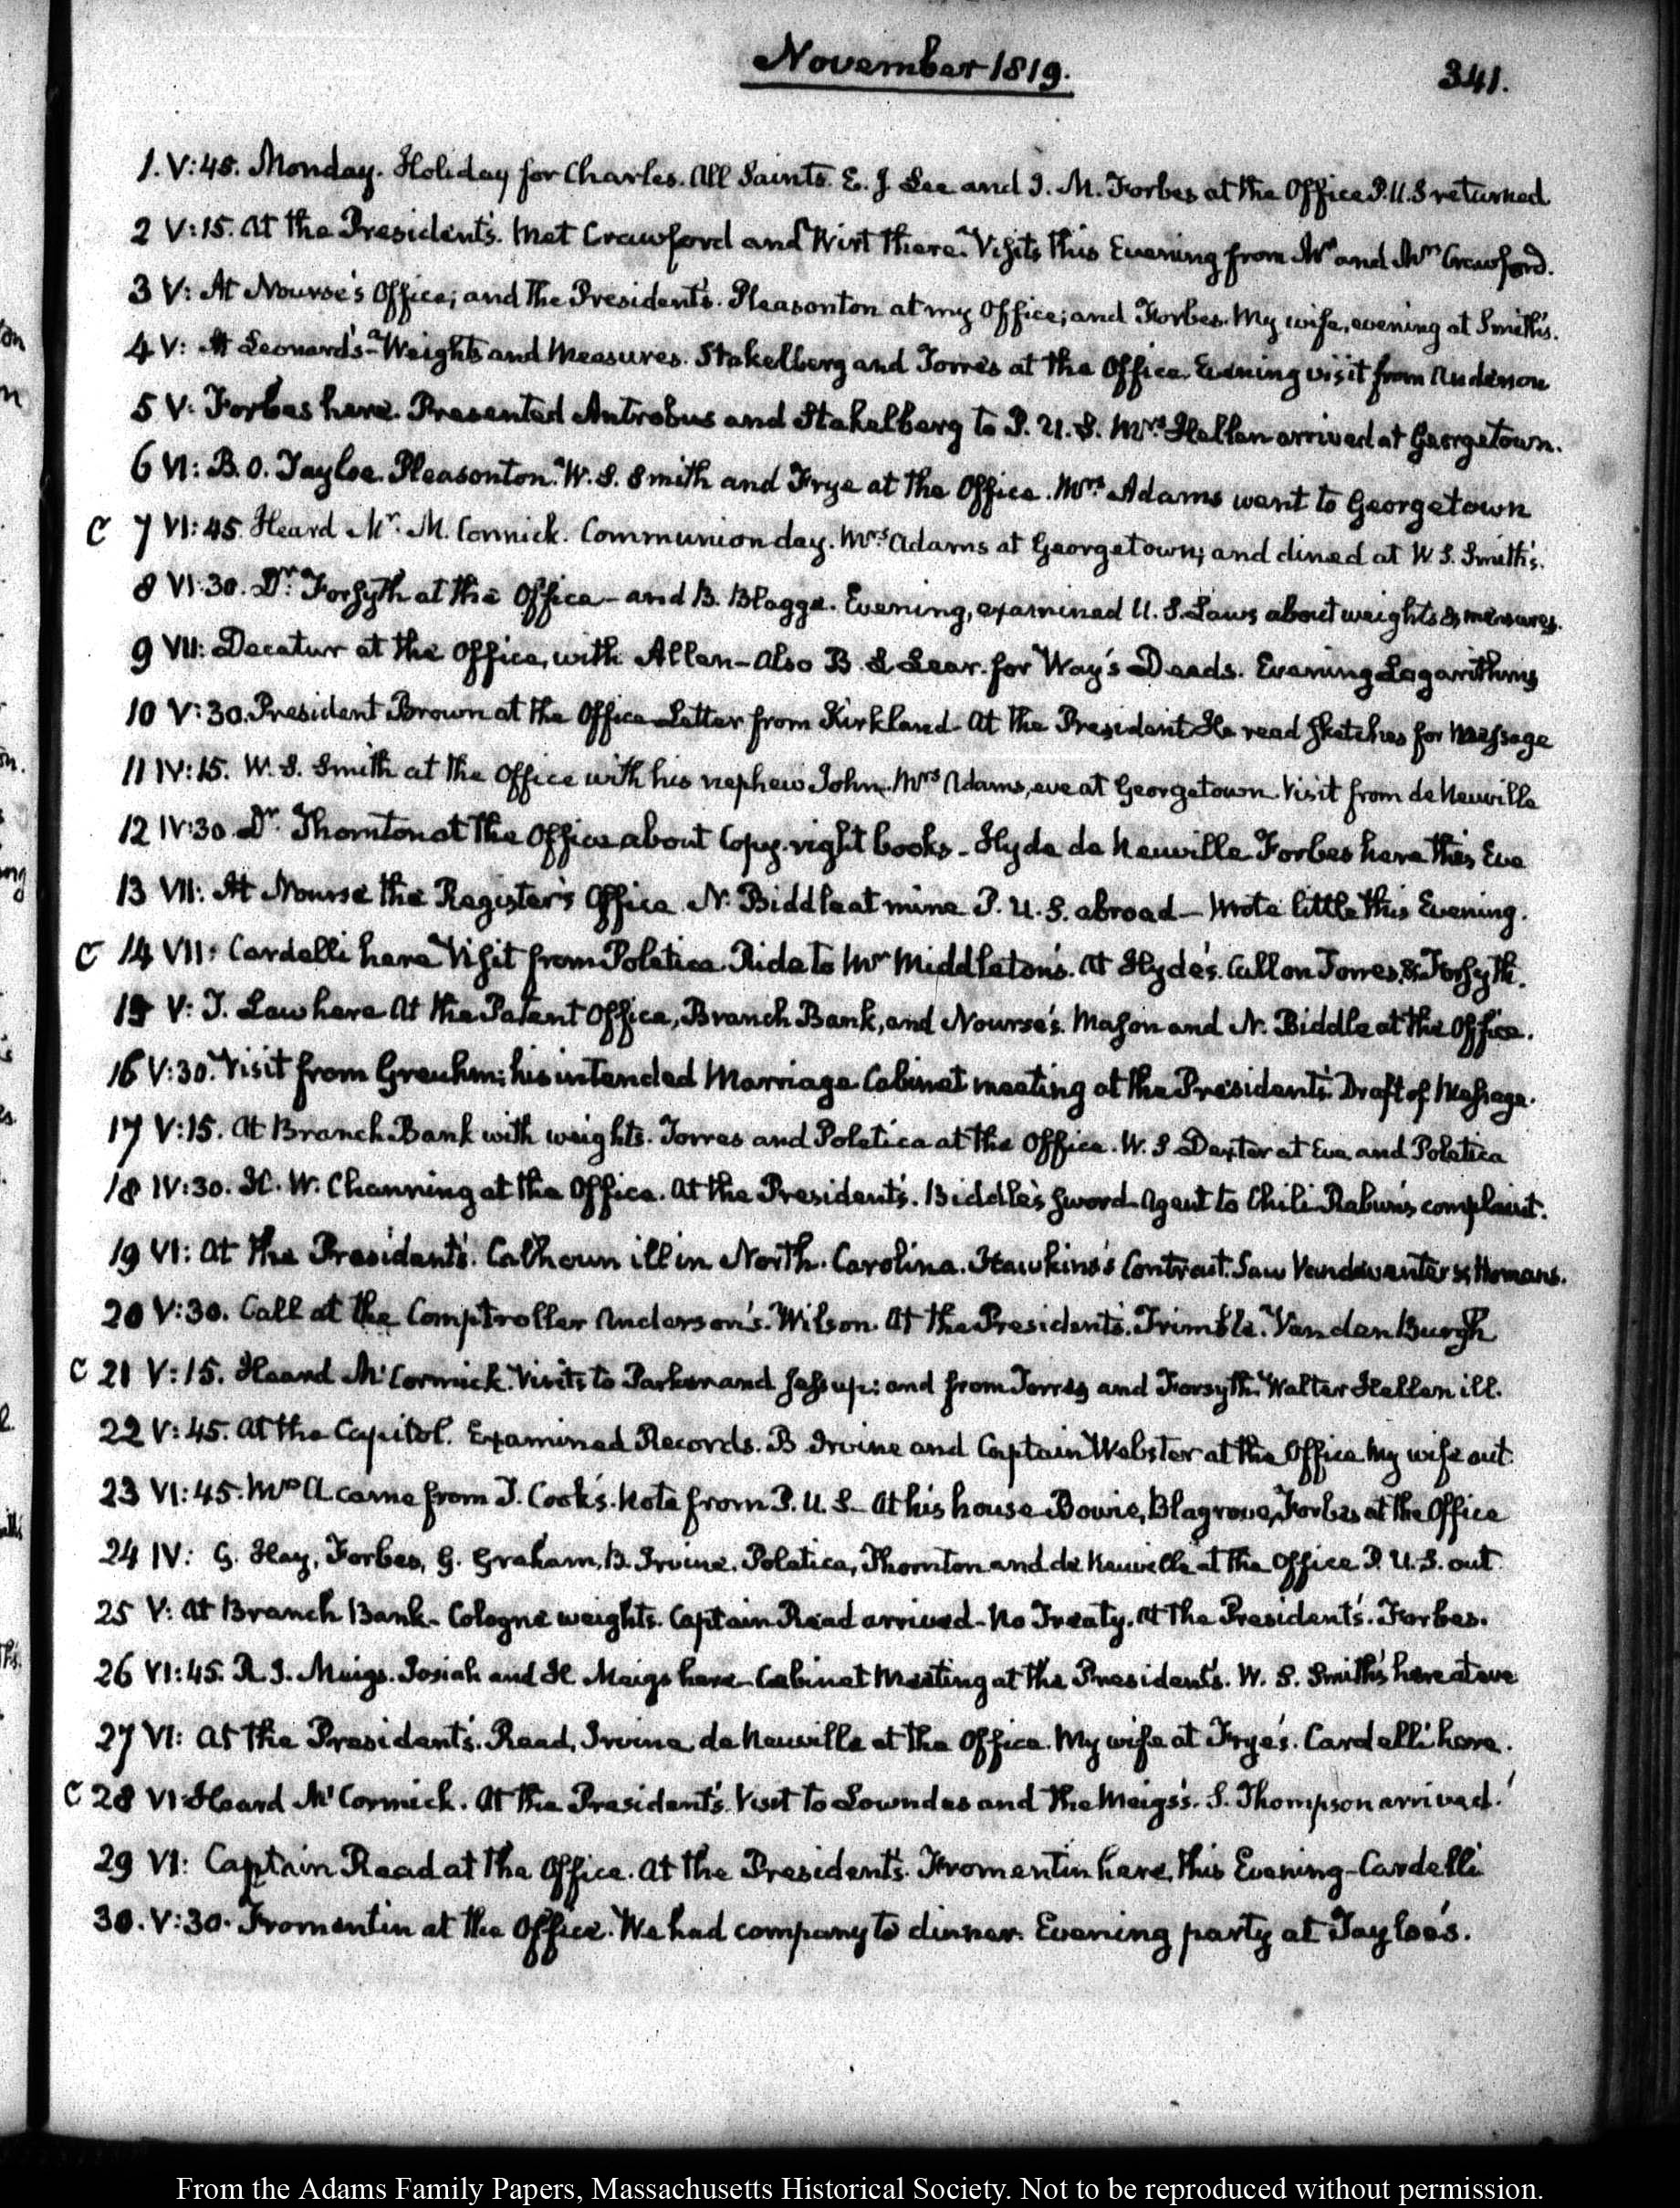 November 1819.
341.
1. V:45. Monday. Holiday for Charles. All Saints. E. J. Lee and J. M. Forbes at the Office P.U.S returned
2 V:15. At the President's. Met Crawford and Wirt there. Visits this Evening from Mr and Mrs Crawford.
3 V: At Nourse's Office; and the President's. Pleasonton at my Office; and Forbes. My wife, evening at Smith's.
4 V: At Leonard's—Weights and Measures. Stakelberg and Torres at the Office. Evening visit from Anderson
5 V: Forbes here. Presented Antrobus and Stakelberg to P. U. S. Mrs. Hellen arrived at Georgetown.
6 VI: B. O. Tayloe. Pleasonton. W. S. Smith and Frye at the Office. Mrs. Adams went to Georgetown
C 7 VI:45. Heard Mr. M. Cormick. Communion day. Mrs Adams at Georgetown; and dined at W. S. Smith's.
8 VI:30. Dr. Forsyth at the Office—and B. Blagge. Evening, examined U. S. Laws about weights & measures.
9 VII: Decatur at the Office, with Allen—Also B. L Lear. for Way's Deeds. Evening Logarithms
10 V:30. President Brown at the Office—Letter from Kirkland—At the President He read sketches for Message
11 IV:15. W. S. Smith at the Office with his nephew John. Mrs Adams, eve at Georgetown. Visit from de Neuville
12 IV:30 Dr. Thornton at the Office about Copy-right books—Hyde de Neuville Forbes here this Eve
13 VII: At Nourse the Register's Office. N. Biddle at mine P. U. S. abroad—Wrote little this Evening.
C 14 VII: Cardelli here Visit from Poletica. Ride to Mr Middleton's. At Hyde's. Call on Torres, & Forsyth.
15 V: T. Law here At the Patent Office, Branch Bank, and Nourse's. Mason and N. Biddle at the Office.
16 V:30. Visit from Greuhm; his intended Marriage Cabinet meeting at the President's. Draft of Message.
17 V:15. At Branch Bank with weights. Torres and Poletica at the Office. W. S Dexter at Eve, and Poletica
18 IV:30. H. W. Channing at the Office. At the President's. Biddle's sword. Agent to Chili. Rabun's complaint.
19 VI: At the President's. Calhoun ill in North. Carolina. Hawkins's Contract. Saw Vandeventer & Homans.
20 V:30. Call at the Comptroller Anderson's. Wilson. At the President's. Trimble. Vanden Burgh
C 21 V:15. Heard McCormick. Visits to Parker and Jessup; and from Torres and Forsyth. Walter Hellen ill.
22 V:45. At the Capitol. Examined Records. B Irvine and Captain Webster at the Office. My wife out
23 VI:45. Mrs A. came from J. Cook's. Note from P. U. S—At his house—Bowie, Blagrove, Forbes at the Office
24 IV: G. Hay, Forbes, G. Graham, B. Irvine. Poletica, Thornton and de Neuville at the Office P. U. S. out
25 V: At Branch Bank—Cologne weights. Captain Read arrived—No Treaty. At the President's. Forbes.
26 VI:45. R. J. Meigs. Josiah and H Meigs here—Cabinet Meeting at the President's. W. S. Smith's here at eve
27 VI: At the President's. Read, Irvine, de Neuville at the Office. My wife at Frye's. Cardelli here.
C 28 VI: Heard McCormick. At the President's. Visit to Lowndes and the Meigs's. S. Thompson arrived.
29 VI: Captain Read at the Office. At the President's. Fromentin here, this Evening—Cardelli
30. V:30. Fromentin at the Office. We had company to dinner. Evening party at Tayloe's.
From the Adams Family Papers, Massachusetts Historical Society. Not to be reproduced without permission.